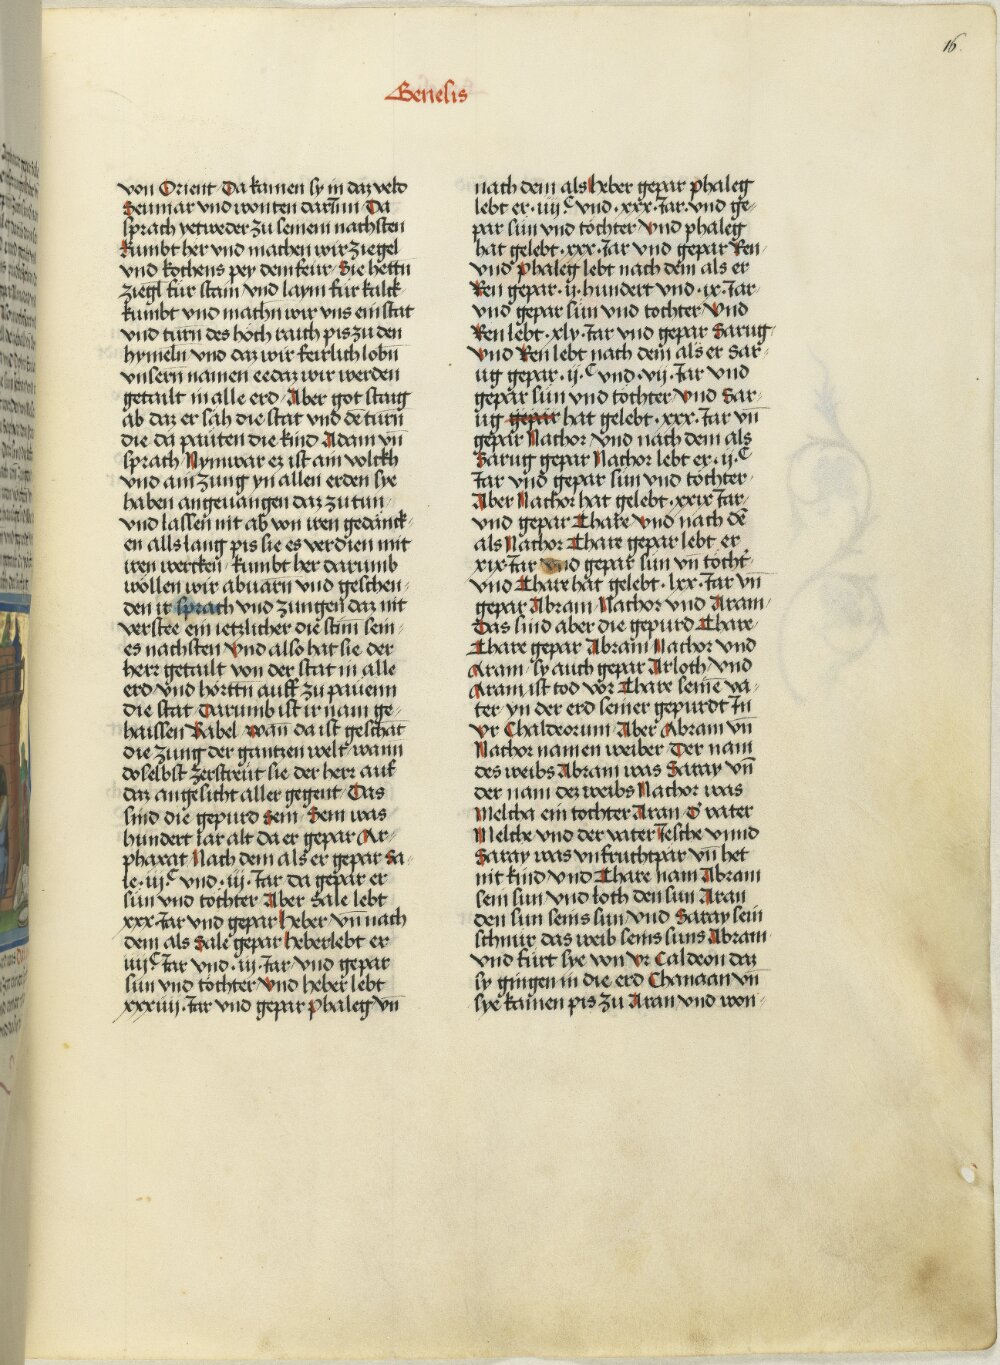 16
Genesis
von Orient Da kamen sy in daz veld
Sennnar vnd wonten dariñn Da
sprach yetweder zu seinem nachsten
kumbt her vnd machen wir ziegel
vnd kochens pey dem feur Sie hettn
ziegl für stain vnd laym für kalck
kumbt vnd machn wir vns ein stat
vnd turn des höch raich pis zu den
hymeln vnd daz wir feirlich lobn
vnsern namen ee daz wir werden
getailt in alle erd Aber got staig
ab daz er säh die stat vnd dē turn
die da pauten die kind Adam vñ
sprach Nymwar ez ist ain volckh
vnd ain zung yn allen erden sye
haben angeuangen daz zu tun
vnd lassen nit ab von iren gedänck
en alls lang pis sie es verdien mit
iren wercken kumbt her darumb
wöllen wir abuarn vnd geschen
den ir sprach vnd zungen daz nit
verstee ein ietzlicher die stim sein
es nachsten Vnd also hat sie der
herr getailt von der stat in alle
erd vnd hörttn auff zu pauenn
die stat Darumb ist ir nam ge
haissen Babel wan da ist geschät
die zung der gantzen welt wann
doselbst zerstreut sie der herr auf
daz angesicht aller gegent Das
sind die gepurd Sem Sem was
hundert iar alt da er gepar Ar
phaxat Nach dem als er gepar Sa
le iii C vnd iii Jar da gepar er
sün vnd töchter Aber Sale lebt
xxx Jar vnd gepar Heber vñ nach
dem als Sale gepar Heber lebt er
iiii C Jar vnd iii Jar vnd gepar
sün vnd töchter Vnd heber lebt
xxxiiii Jar vnd gepar Phaleg vñ
nach dem als Heber gepar Phaleg
lebt er iiii C vnd xxx Jar vnd ge
par sün vnd töchter Vnd phaleg
hat gelebt xxx Jar vnd gepar Ren
vnd Phaleg lebt nach dem als er
Ren gepar ii hundert vnd ix Jar
vnd gepar sün vnd töchter Vnd
Ren lebt xly Jar vnd gepar Sarug
Vnd Ren lebt nach dem als er Sar
ug gepar ii C vnd vii Jar vnd
gepar sün vnd töchter Vnd Sar
ug gepar hat gelebt xxx Jar vñ
gepar Nachor Vnd nach dem als
Sarug gepar Nachor lebt er ii C
Jar vnd gepar sün vnd töchter
Aber Nachor hat gelebt xxix Jar
vnd gepar Thare vnd nach dē
als Nachor Thare gepar lebt er
xix Jar vnd gepar sün vñ töcht
vnd Thare hat gelebt lxx Jar vñ
gepar Abram Nachor vnd Aram
Das sind aber die gepurd Thare
Thare gepar Abram Nachor vnd
Aram sy auch gepar Ar loth Vnd
Aram ist tod vor Thare seinē va
ter yn der erd seiner gepurdt Jn
Vr Chaldeorum Aber Abram vñ
Nachor namen weiber Der nam
des weibs Abram was Saray vñ
der nam dez weibs Nachor was
Melcha ein tochter Aran d' vater
Melche vnd der vater Jesche vnnd
Saray was vnfruchtpär vñ het
nit kind vnd Thare nam Abram
sein sun vnd loth den sun Aran
den sun seins sun vnd Saray sein
schnür das weib seins suns Abram
vnd fürt sye von Vr Caldeon daz
sy gingen in die erd Chanaan vñ
sye kamen pis zu Aran vnd won